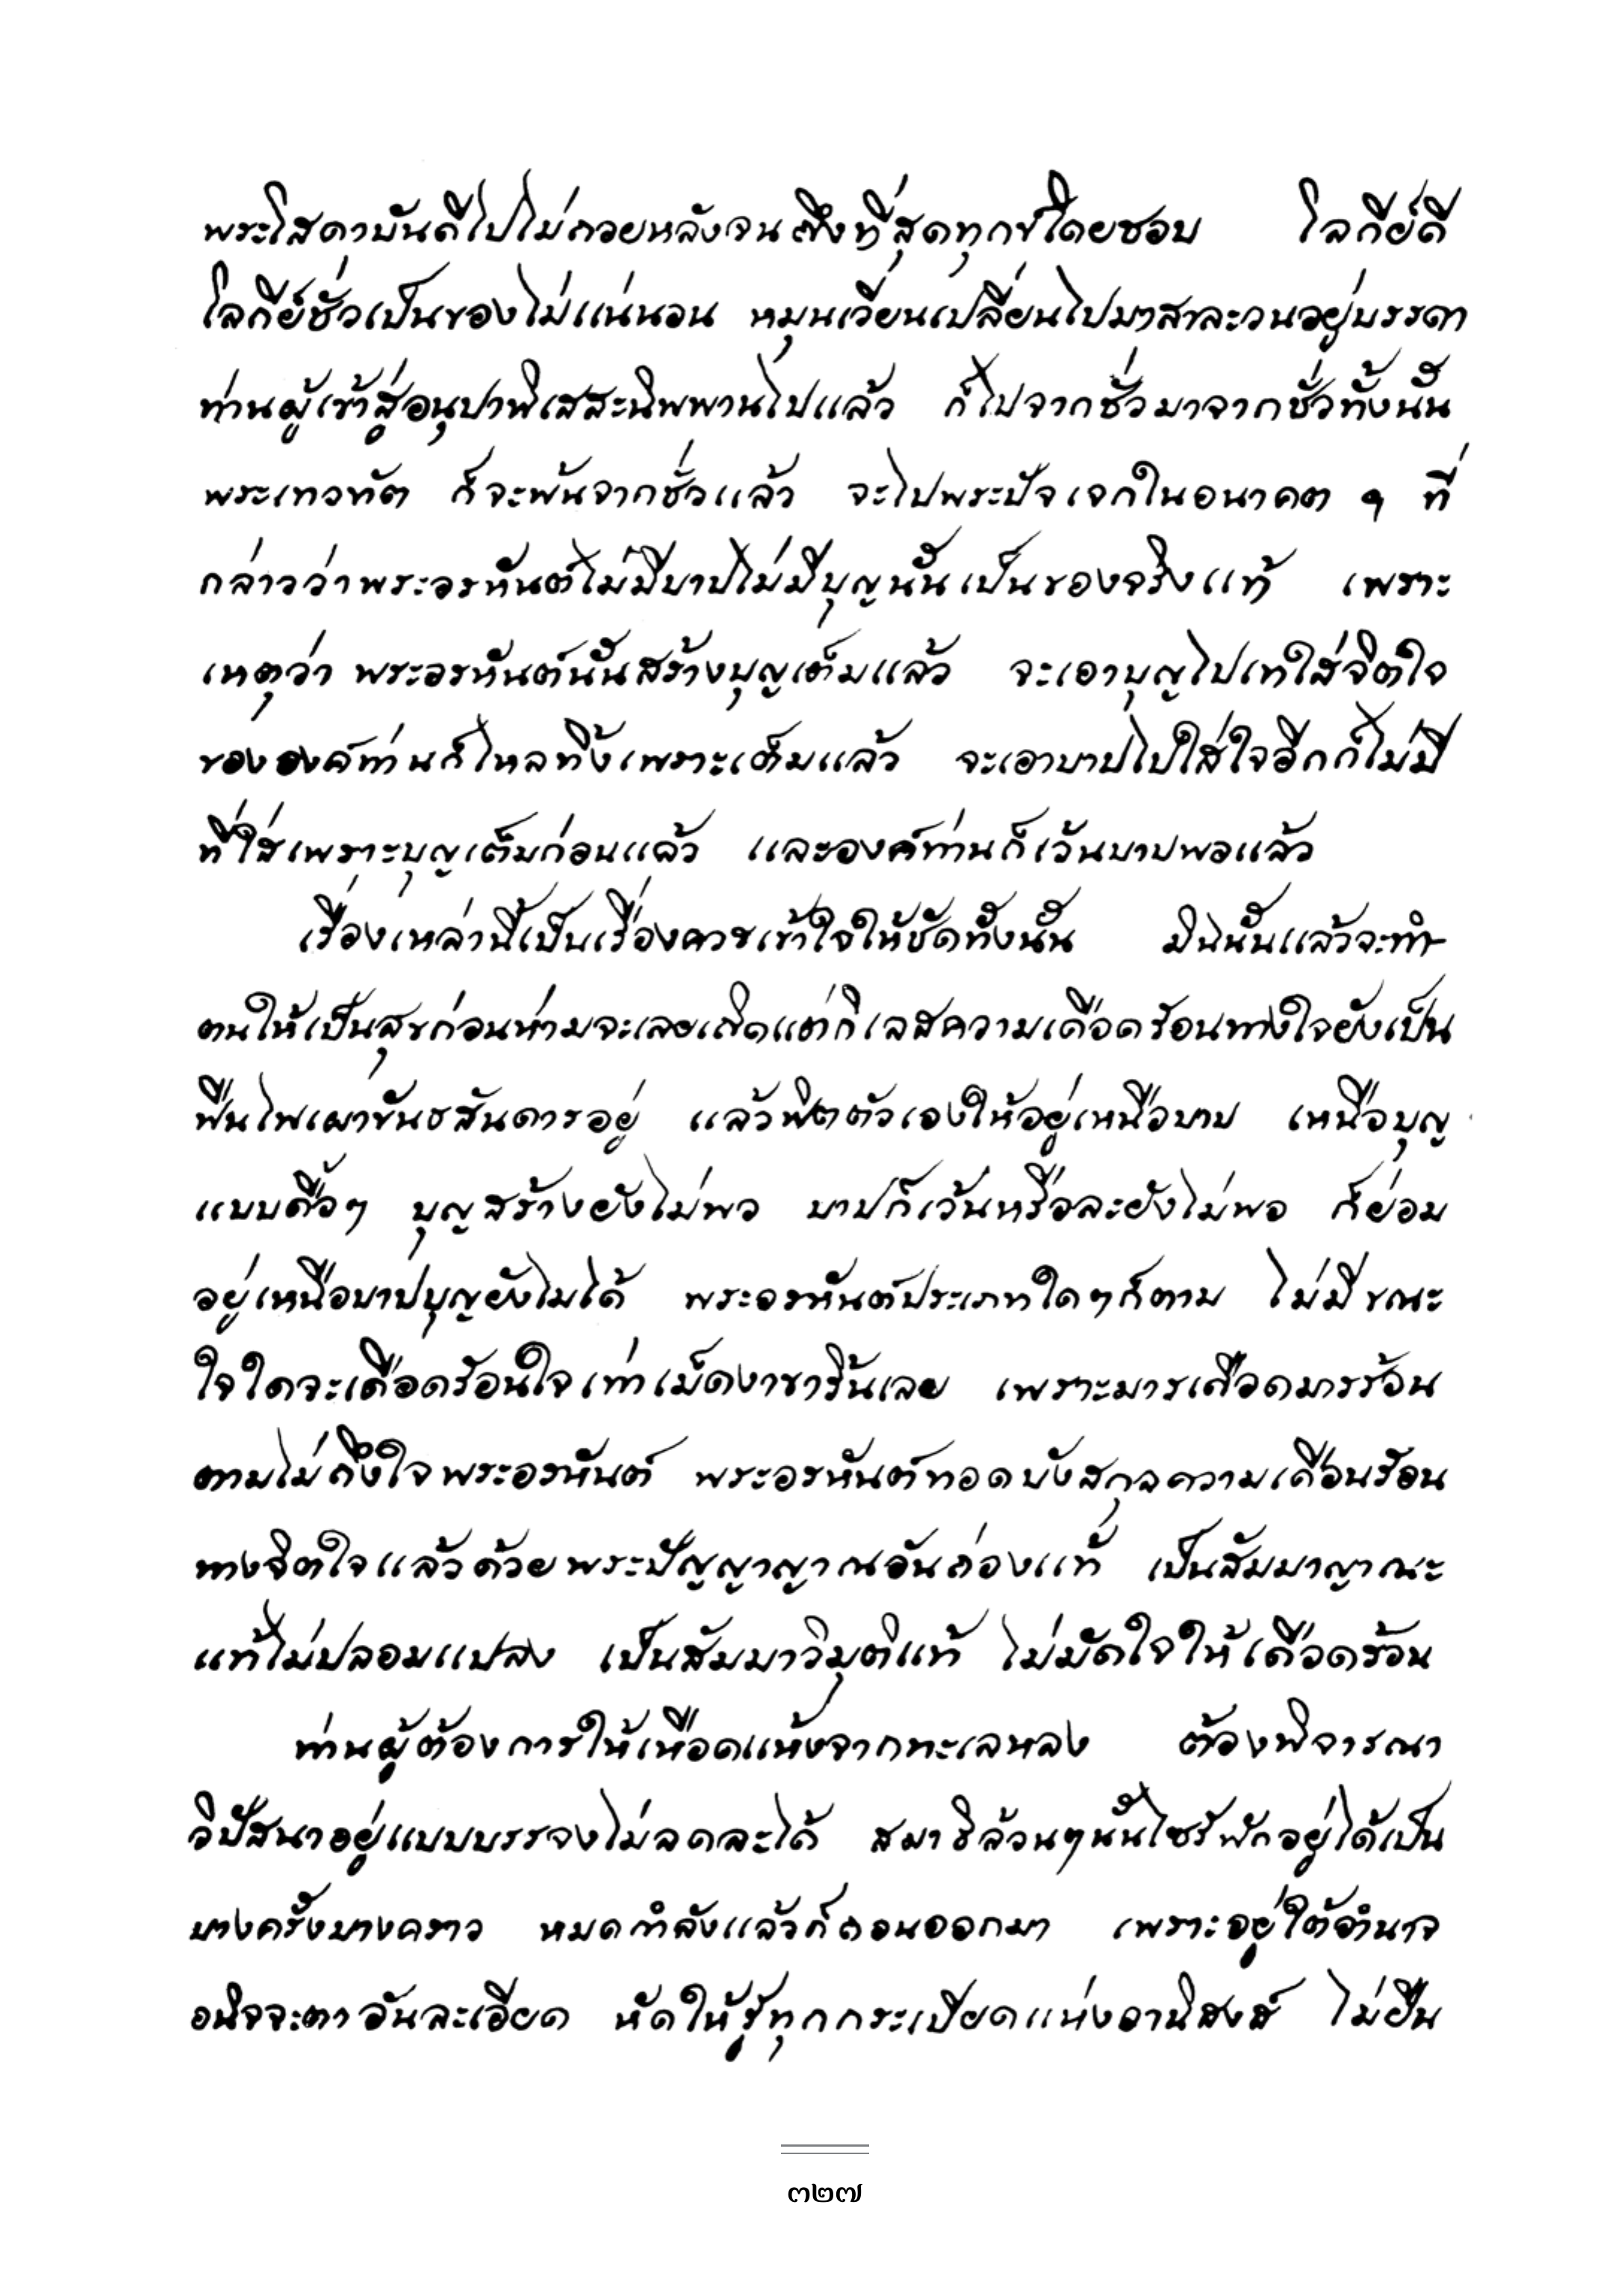 พระโสดาบันดีไปไม่ถอยหลังจนถึงที่สุดทุกข์โดยชอบ โลกีย์ดี
โลกีย์ชั่วเป็นของไม่แน่นอน หมุนเวียนเปลี่ยนไปมาสาละวนอยู่บรรดา
ท่านผู้เข้าสู่อนุปาทิเสสะนิพพานไปแล้ว ก็ไปจากชั่วมาจากชั่วทั้งนั้น
พระเทวทัต ก็จะพ้นจากชั่วแล้ว จะไปพระปัจเจกในอนาคต ๆ ที่
กล่าวว่าพระอรหันต์ไม่มีบาปไม่มีบุญนั้นเป็นของจริงแท้ เพราะ
เหตุว่า พระอรหันต์นั้นสร้างบุญเต็มแล้ว จะเอาบุญไปเทใส่จิตใจ
ขององค์ท่านก็ไหลทิ้งเพราะเต็มแล้ว จะเอาบาปไปใส่ใจอีกก็ไม่มี
ที่ใส่เพราะบุญเต็มก่อนแล้ว และองค์ท่านก็เว้นบาปพอแล้ว
เรื่องเหล่านี้เป็นเรื่องควรเข้าใจให้ชัดทั้งนั้น มิฉนั้นแล้วจะทำ
ตนให้เป็นสุขก่อนห่ามจะเลยเถิดแต่กิเลสความเดือดร้อนทางใจยังเป็น
ฟืนไฟเผาขันธสันดารอยู่ แล้วฟิตตัวเองให้อยู่เหนือบาป เหนือบุญ
แบบดื้อๆ บุญสร้างยังไม่พอ บาปก็เว้นหรือละยังไม่พอ ก็ย่อม
อยู่เหนือบาปบุญยังไม่ได้ พระอรหันต์ประเภทใดๆก็ตาม ไม่มีขณะ
ใจใดจะเดือดร้อนใจเท่าเม็ดงาขาริ้นเลย เพราะมารเดือดมารร้อน
ตามไม่ถึงใจพระอรหันต์ พระอรหันต์ทอดบังสกุลความเดือนร้อน
ทางจิตใจแล้วด้วยพระปัญญาญาณอันถ่องแท้ เป็นสัมมาญาณะ
แท้ไม่ปลอมแปลง เป็นสัมมาวิมุติแท้ ไม่มัดใจให้เดือดร้อน
ท่านผู้ต้องการให้เหือดแห้งจากทะเลหลง ต้องพิจารณา
วิปัสนาอยู่แบบบรรจงไม่ลดละได้ สมาธิล้วนๆนั้นไซร้พักอยู่ได้เป็น
บางครั้งบางคราว หมดกำลังแล้วก็ถอนออกมา เพราะอยู่ใต้อำนาจ
อนิจจะตาอันละเอียด หัดให้รู้ทุกกระเบียดแห่งอานิสงส์ ไม่ยืน
๓๒๗